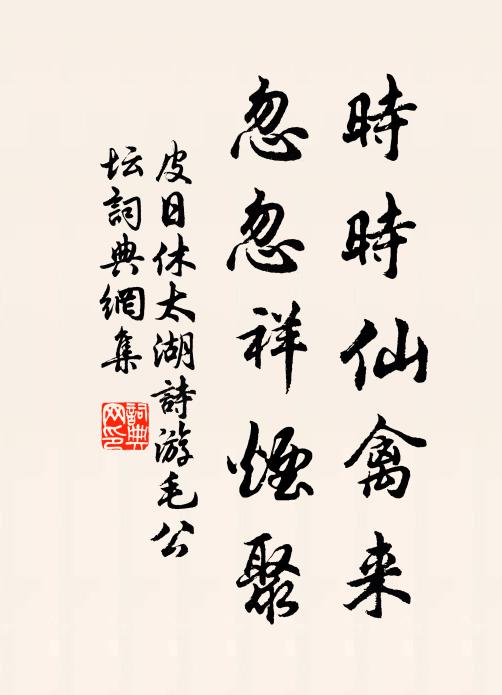 時時仙禽来
忽忽祥煙聚
皮日休太湖詩游毛公
坛詞典網集
詞典
网印